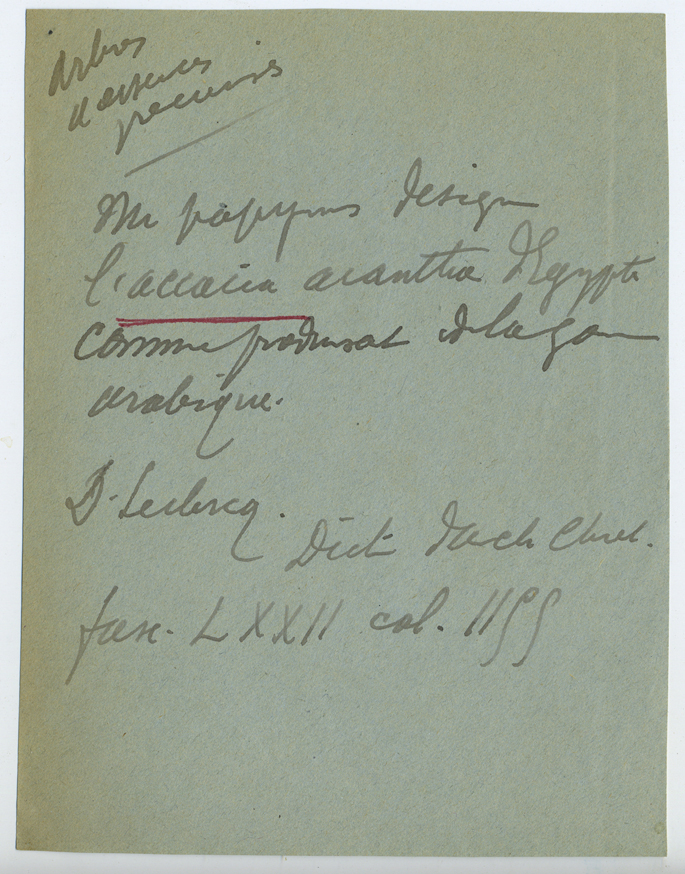 Arbres
d'essences
precieuses
Un papyrus design
l'accacia acantha d'Egypte
comme produisat de la gom
arabique.
D. Leclercq.
Dict. d'arch Chret.
fasc. LXXII col. 1155